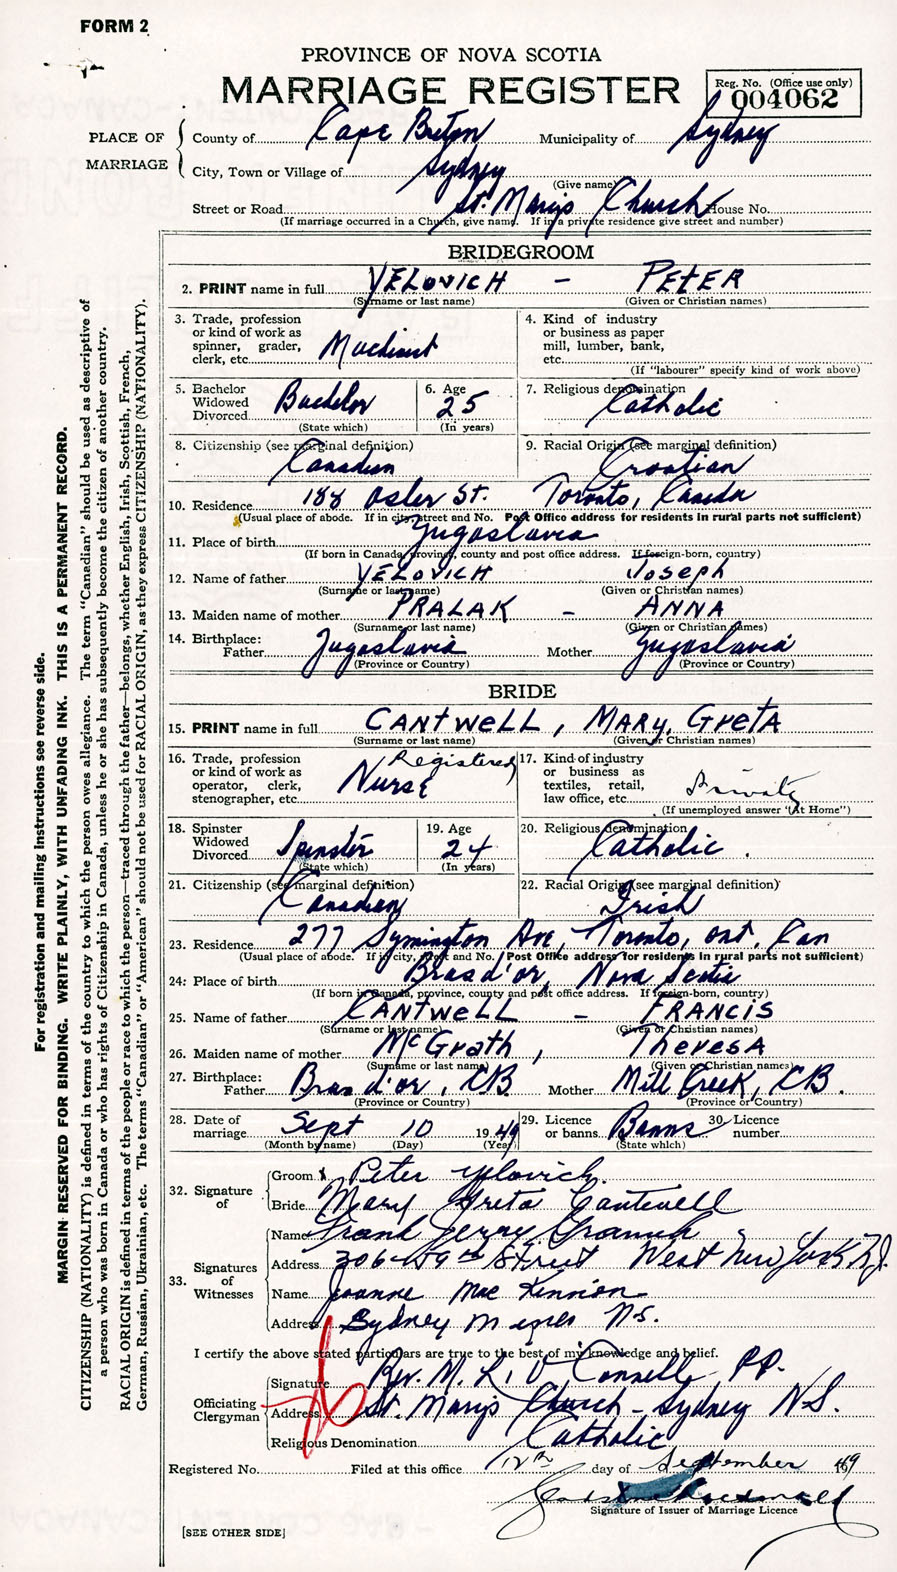 FORM 2
PROVINCE OF NOVA SCOTIA
MARRIAGE REGISTER
Reg. No. (Office use only)
004062
PLACE OF MARRIAGE
County of Cape Breton Municipality of Sydney
City, Town or Village of Sydney
(Give name)
Street or Road St. Mary's Church House No.
(If marriage occurred in a Church, give name. If in a private residence give street and number)
BRIDEGROOM
2. PRINT name in full YELOVICH - PETER
(Surname or last name) (Given or Christian names)
3. Trade, profession or kind of work as spinner, grader, clerk, etc. Machinist
4. Kind of industry or business as paper mill, lumber, bank, etc.
(If "labourer" specify kind of work above)
5. Bachelor Widowed Divorced Bachelor
(State which)
6. Age 25
(In years)
7. Religious denomination Catholic
8. Citizenship (see marginal definition) Canadian
9. Racial Origin (see marginal definition) Croatian
10. Residence 188 Osler St. Toronto, Canada
(Usual place of abode. If in city, street and No. Post Office address for residents in rural parts not sufficient)
11. Place of birth Jugoslavia
(If born in Canada, province, county and post office address. If foreign-born, country)
12. Name of father YELOVICH Joseph
(Surname or last name) (Given or Christian names)
13. Maiden name of mother PRALAK - ANNA
(Surname or last name) (Given or Christian names)
14. Birthplace: Father Jugoslavia Mother Jugoslavia
(Province or Country) (Province or Country)
BRIDE
15. PRINT name in full CANTWELL, MARY, GRETA
(Surname or last name) (Given or Christian names)
16. Trade, profession or kind of work as operator, clerk, stenographer, etc. Registered Nurse
17. Kind of industry or business as textiles, retail, law office, etc.
(If unemployed answer "At Home")
18. Spinster Widowed Divorced Spinster
(State which)
19. Age 24
(In years)
20. Religious denomination Catholic.
21. Citizenship (see marginal definition) Canadian
22. Racial Origin (see marginal definition) Irish
23. Residence 277 Symington Ave, Toronto, Ont. Can
(Usual place of abode. If in city, street and No. Post Office address for residents in rural parts not sufficient)
24. Place of birth Bras d'or, Nova Scotia
(If born in Canada, province, county and post office address. If foreign-born, country)
25. Name of father CANTWELL - FRANCIS
(Surname or last name) (Given or Christian names)
26. Maiden name of mother McGrath, Theresa
(Surname or last name) (Given or Christian names)
27. Birthplace: Father Bras d'or, CB Mother Mill Creek, CB.
(Province or Country) (Province or Country)
28. Date of marriage Sept 10 1949
(Month by name) (Day) (Year)
29. Licence or banns Banns
(State which)
30. Licence number
32. Signature of
Groom Peter Yelovich
Bride Mary Greta Cantwell
33. Signatures of Witnesses
Name Frank Jerry
Address 306-59th Street West New York N.J.
Name Joanne MacKinnon
Address Sydney Mines N.S.
I certify the above stated particulars are true to the best of my knowledge and belief.
Officiating Clergyman
Signature Rev. M. L. O'Connell P.P.
Address St. Mary's Church - Sydney N.S.
Religious Denomination Catholic
Registered No. Filed at this office 12th day of September 1949
Signature of Issuer of Marriage Licence
[SEE OTHER SIDE]
For registration and mailing instructions see reverse side.
MARGIN RESERVED FOR BINDING. WRITE PLAINLY, WITH UNFADING INK. THIS IS A PERMANENT RECORD.
CITIZENSHIP (NATIONALITY) is defined in terms of the country to which the person owes allegiance. The term "Canadian" should be used as descriptive of
a person who was born in Canada or who has rights of Citizenship in Canada, unless he or she has subsequently become the citizen of another country.
RACIAL ORIGIN is defined in terms of the people or race to which the person—traced through the father—belongs, whether English, Irish, Scottish, French,
German, Russian, Ukrainian, etc. The terms "Canadian" or "American" should not be used for RACIAL ORIGIN, as they express CITIZENSHIP (NATIONALITY).